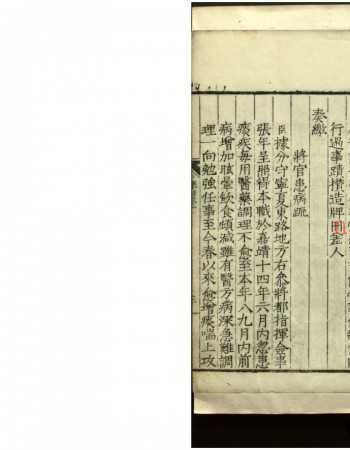 行過事蹟攢造牌冊差人
奏繳
將官患病疏
臣據分守寧夏東路地方右參將都指揮僉事
張年呈將本職於嘉靖十四年六月內忽患
痰疾每用醫藥調理不愈至本年八九月內前
病增加眩暈飲食頓減雖有醫方病深急難調
理一向勉強任事至今春以來愈增痰喘上攻